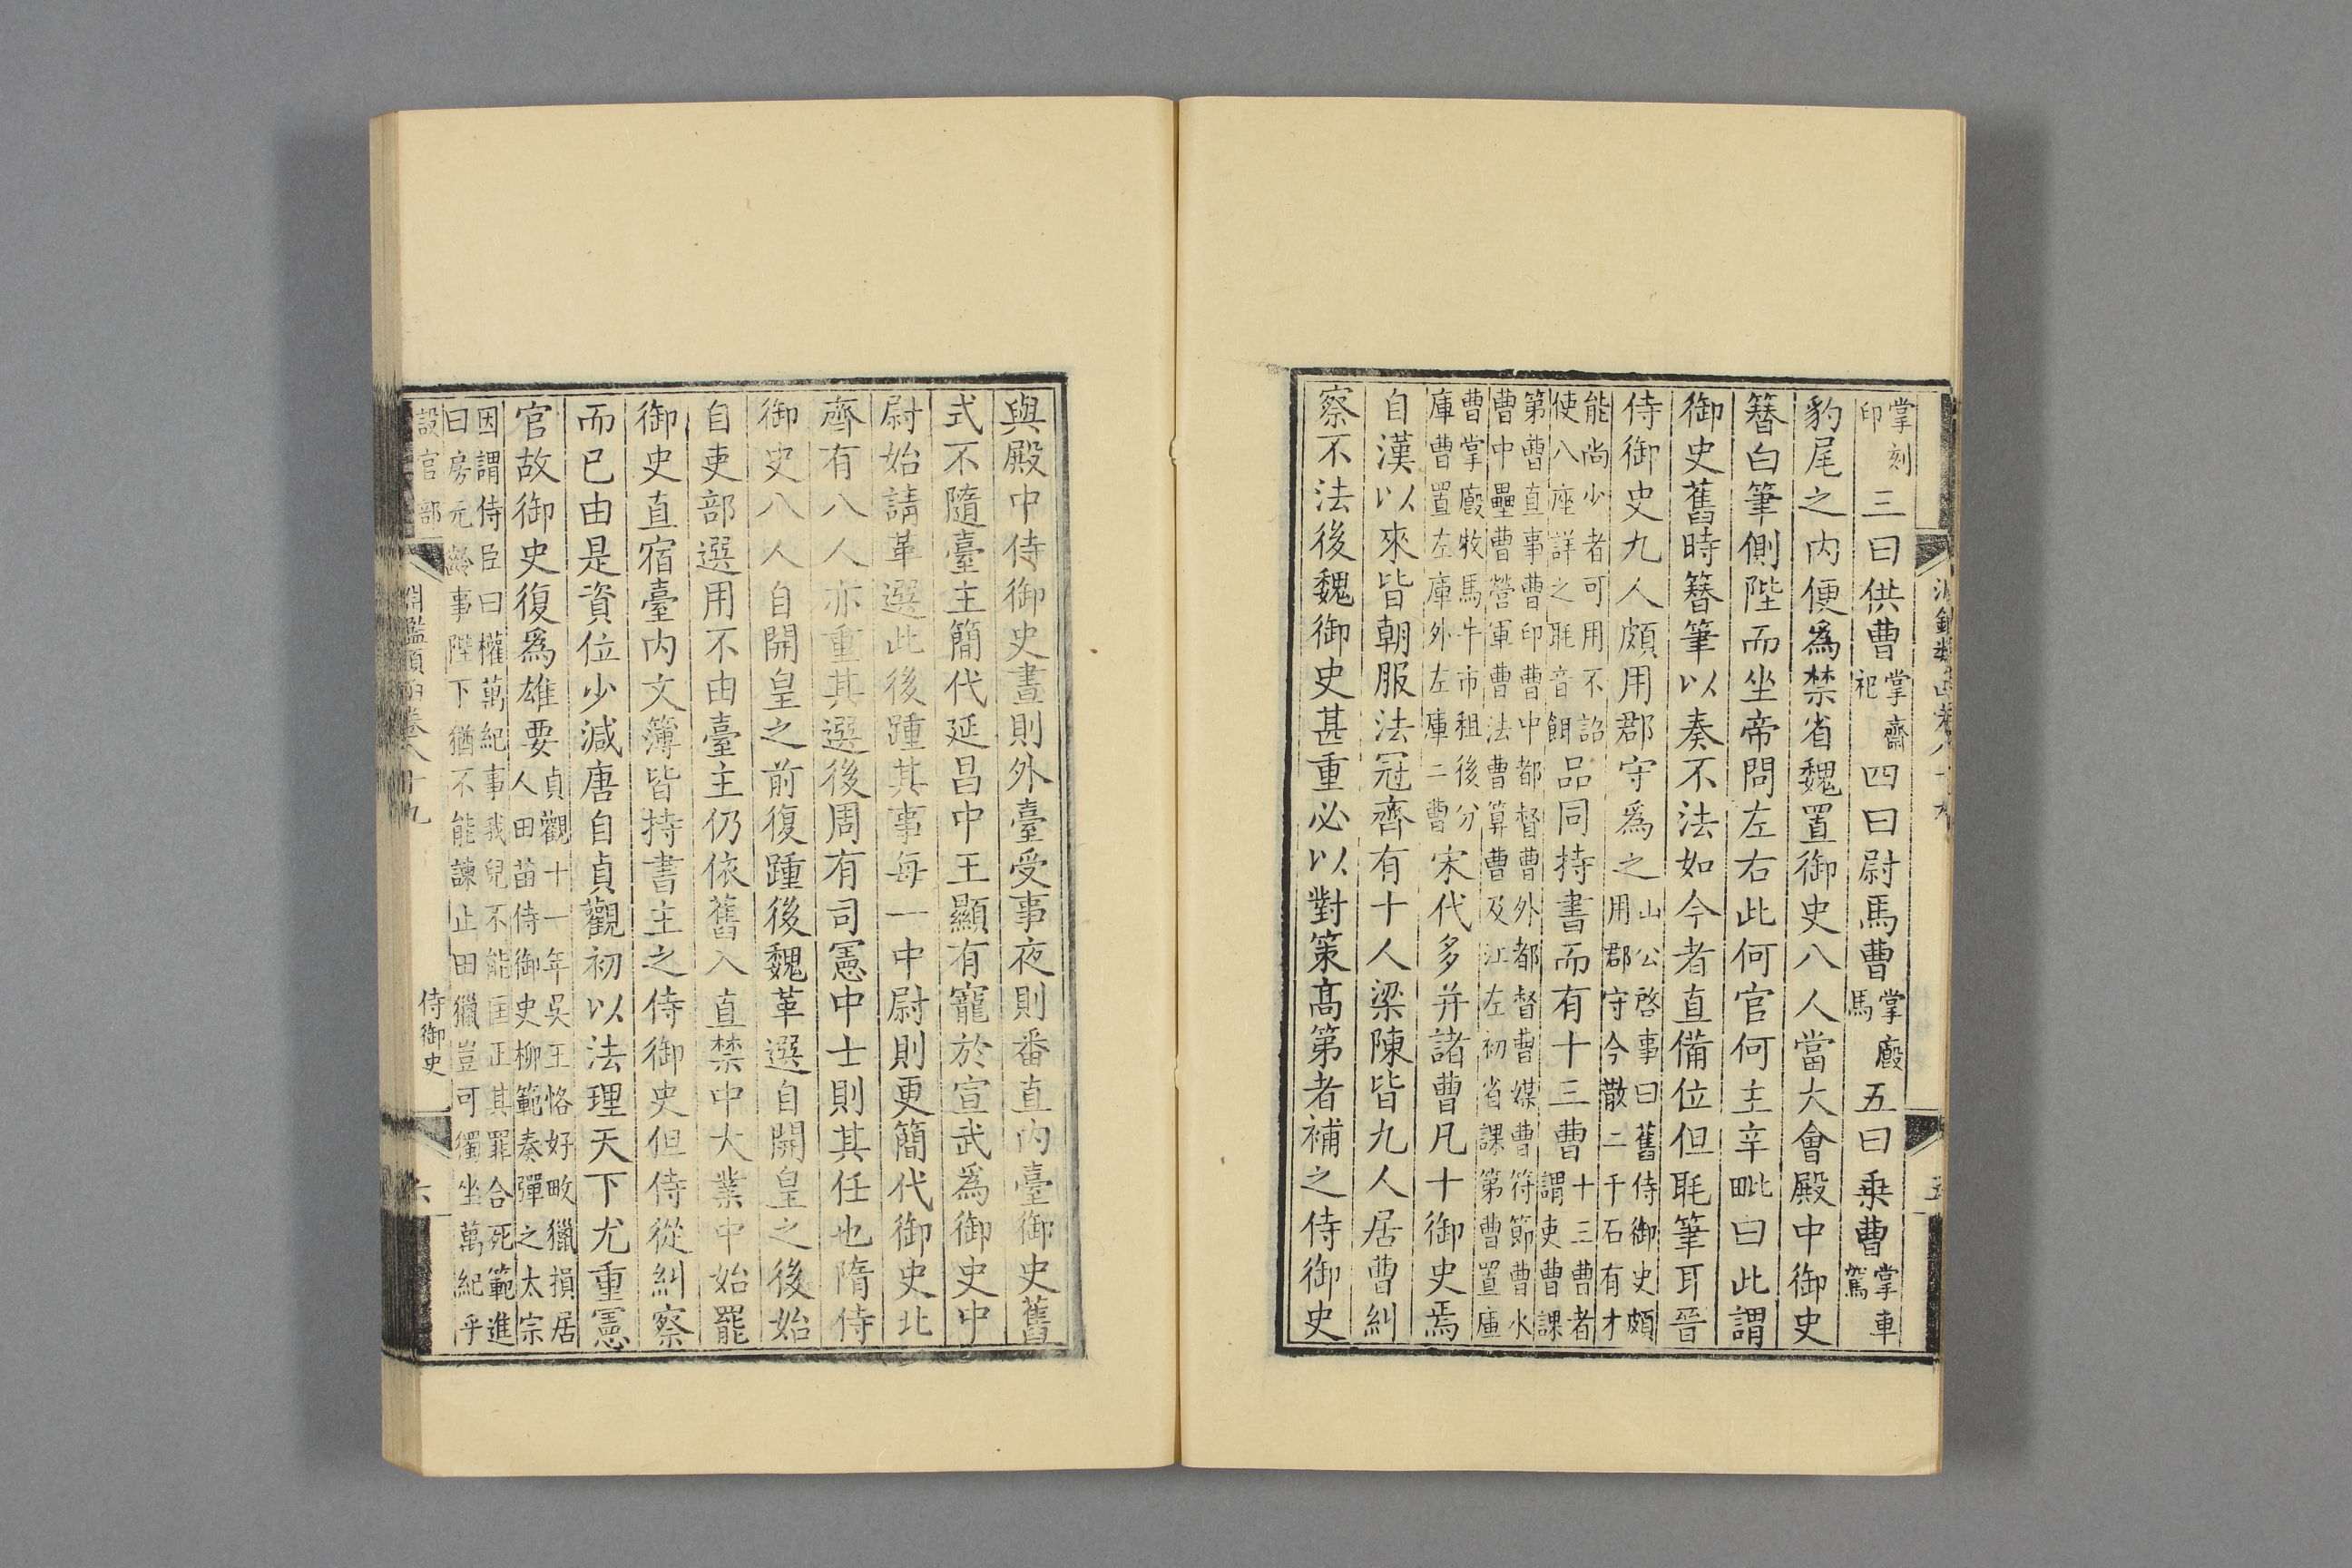 掌刻印三曰供曹掌齋祀四曰尉馬曹掌廄馬五曰乗曹掌車駕
豹尾之内便爲禁省魏置御史八人當大會殿中御史
簪白筆側陛而坐帝問左右此何官何主辛毗曰此謂
御史舊時簪筆以奏不法如今者直備位但毦筆耳晉
侍御史九人頗用郡守爲之山公啓事曰舊侍御史頗用郡守今散二千石有才
能尚少者可用不詔使八座詳之毦音餌品同持書而有十三曹十三曹者謂吏曹課
第曹直事曹印曹中都督曹外都督曹媒曹符節曹水曹中壘曹營軍曹法曹算曹及江左初省課第曹置庫
曹掌廄牧馬牛市租後分庫曹置左庫外左庫二曹宋代多并諸曹凡十御史焉
自漢以來皆朝服法冠齊有十人梁陳皆九人居曹糾
察不法後魏御史甚重必以對策髙第者補之侍御史
與殿中侍御史晝則外臺受事夜則番直内臺御史舊
式不隨臺主簡代延昌中王顯有寵於宣武爲御史中
尉始請革選此後踵其事每一中尉則更簡代御史北
齊有八人亦重其選後周有司憲中士則其任也隋侍
御史八人自開皇之前復踵後魏革選自開皇之後始
自吏部選用不由臺主仍依舊入直禁中大業中始罷
御史直宿臺内文簿皆持書主之侍御史但侍從糾察
而已由是資位少減唐自貞觀初以法理天下尤重憲
官故御史復爲雄要貞觀十一年吳王恪好畋獵損居人田苗侍御史柳範奏彈之太宗
因謂侍臣曰權萬紀事我兒不能匡正其罪合死範進曰房元齡事陛下猶不能諫止田獵豈可獨坐萬紀乎
設官部 淵鑑類函卷八十九 侍御史 六